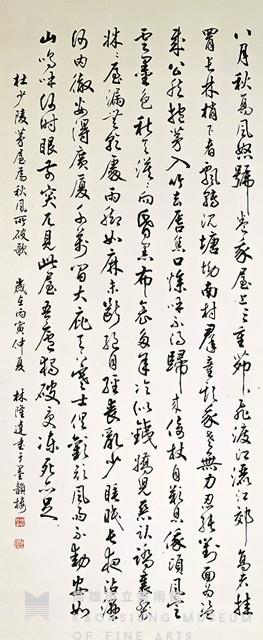 八月秋高風怒號卷我屋上三重茅茅飛渡江灑江郊高者挂
罥長林梢下者飄轉沉塘坳南村群童欺我老無力忍能對面為盜
賊公然抱茅入竹去唇焦口燥呼不得歸來倚杖自歎息俄頃風定
雲墨色秋天漠漠向昏黑布衾多年冷似鐵嬌兒惡臥踏裏裂
牀牀屋漏無乾處雨腳如麻未斷絕自經喪亂少睡眠長夜沾濕
何由徹安得廣廈千萬間大庇天下寒士俱歡顏風雨不動安如
山嗚呼何時眼前突兀見此屋吾廬獨破受凍死亦足
杜少陵茅屋為秋風所破歌 歲在丙寅仲夏 林隆達書于墨韻樓
高雄市立美術館
KAOHSIUNG MUSEUM
OF FINE ARTS